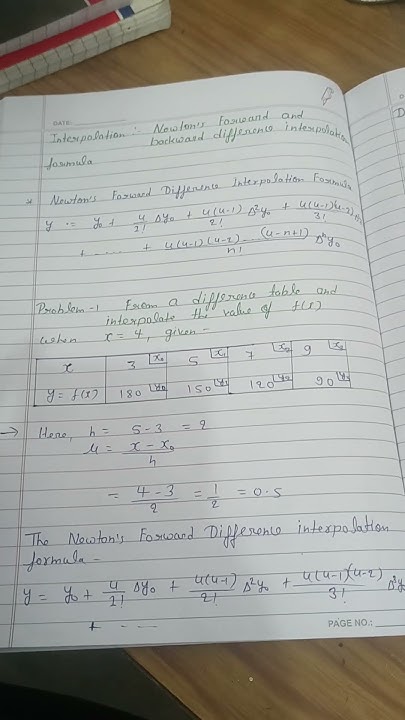 DATE:
Interpolation: Newton's Forward and
backward difference interpolation
formula
* Newton's Forward Difference Interpolation Formula
y = y₀ + u/1! Δy₀ + u(u-1)/2! Δ²y₀ + u(u-1)(u-2)/3!
+ ..... + u(u-1)(u-2)....(u-n+1)/n! Δⁿy₀
Problem-1 From a difference table and
interpolate the value of f(x)
when x = 4, given -
x 3 x₀ 5 x₁ 7 x₂ 9 x₃
y = f(x) 180 y₀ 150 y₁ 120 y₂ 90 y₃
→ Here, h = 5-3 = 2
u = x - x₀/h
= 4-3/2 = 1/2 = 0.5
The Newton's Forward Difference interpolation
formula -
y = y₀ + u/1! Δy₀ + u(u-1)/2! Δ²y₀ + u(u-1)(u-2)/3!
+ - --
PAGE NO.: